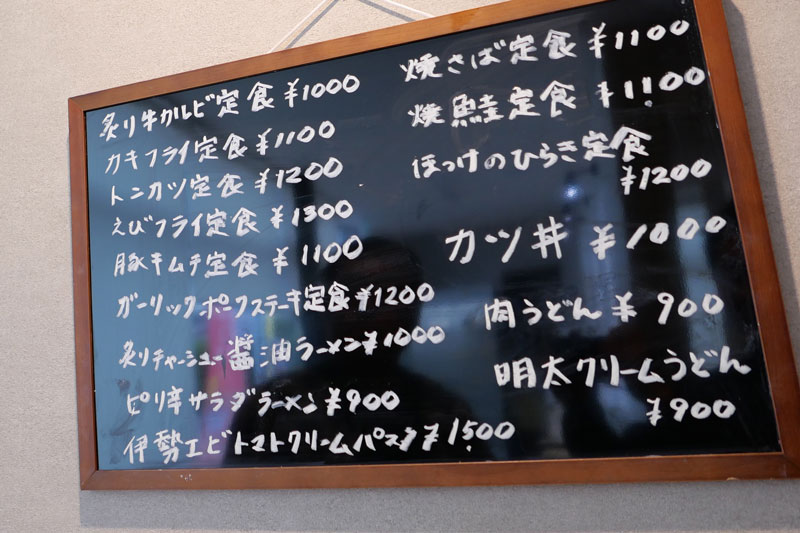 炙り牛カルビ定食 ¥1000
カキフライ定食 ¥1100
トンカツ定食 ¥1200
えびフライ定食 ¥1300
豚キムチ定食 ¥1100
ガーリックポークステーキ定食 ¥1200
炙りチャーシュー醤油ラーメン ¥1000
ピリ辛サラダラーメン ¥900
伊勢エビトマトクリームパスタ ¥1500
焼さば定食 ¥1100
焼鮭定食 ¥1100
ほっけのひらき定食
¥1200
カツ丼 ¥1000
肉うどん ¥900
明太クリームうどん
¥900